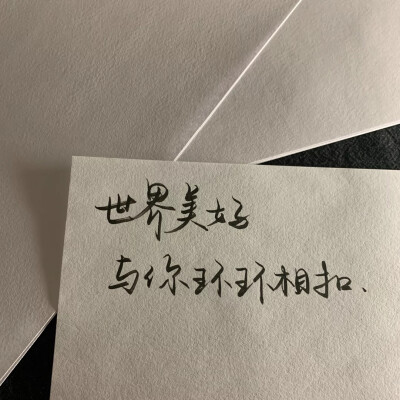 世界美好
与你环环相扣、